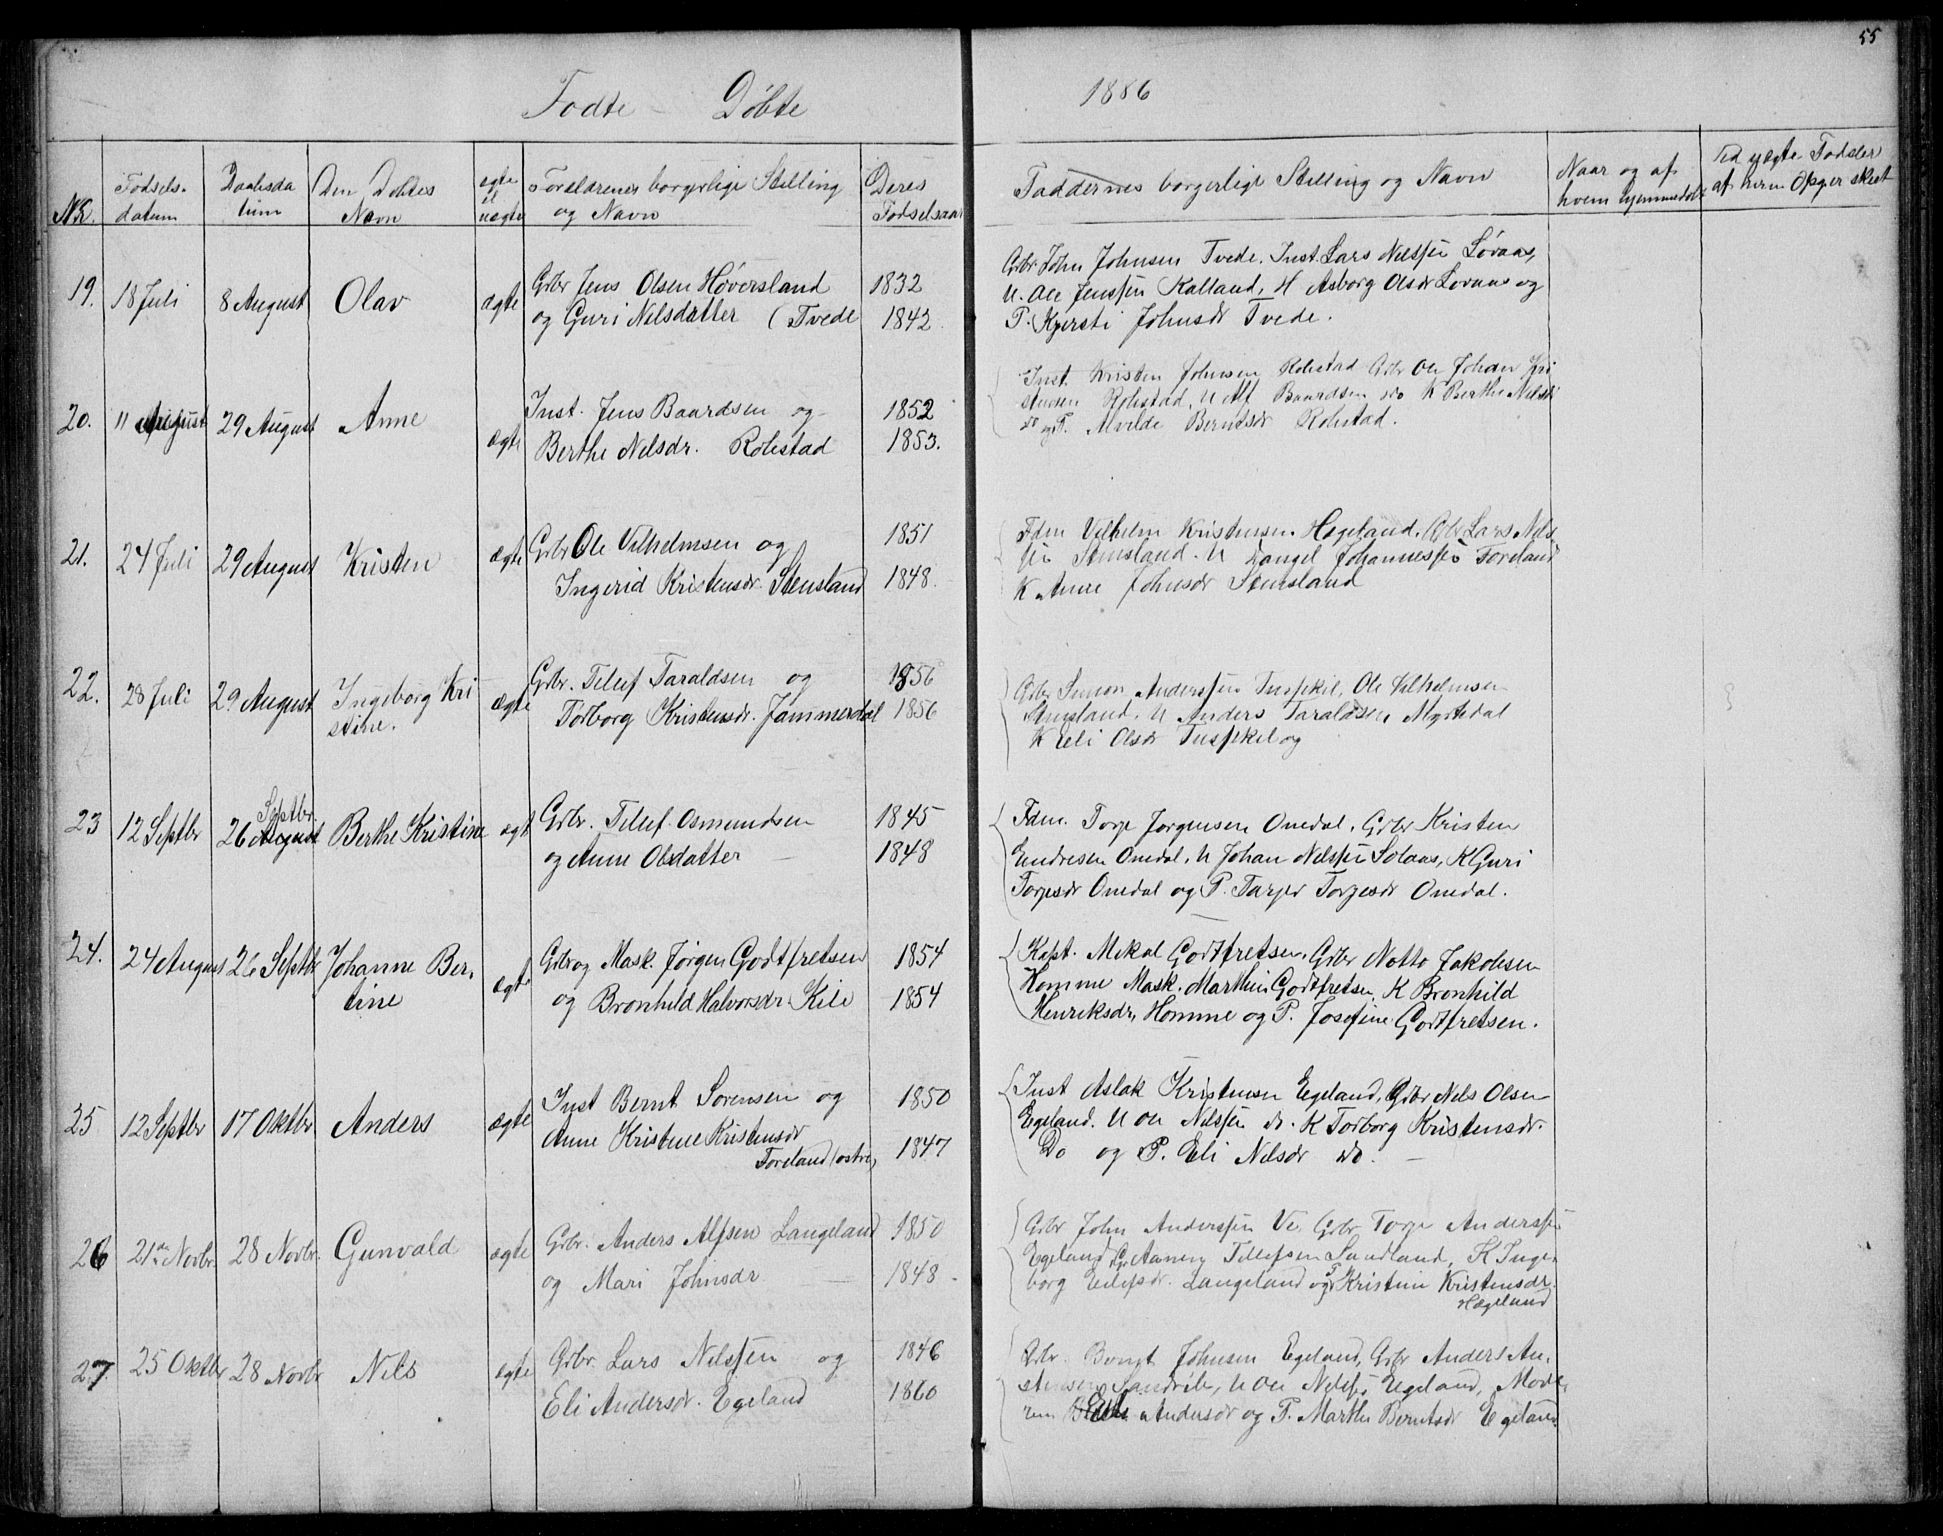 55
Fodte - Døbte 1886
Nr. Fodsels- datum Daabsda tum Den Dobtes Navn ægte el uægte Forældrenes borgerlige Stilling og Navn Deres Fodselsaar Faddernes borgerlige Stilling og Navn Naar og af hvem hjemmedobt Ved uægte Fodsler af hvem Opgør skeet
19. 18 Juli 8 August Olav ægte Grbr Jens Olsen Høversland 1832
og Guri Nilsdatter (Tvede 1842.
Grbr. John Johnsen Tvede. Inst. Lars Nilssen Løvaas,
U. Ole Jenssen Kalland, K Asborg Olsdr Løvaas og
P. Kjersti Johnsdr Tvede.
20. 11 August 29 August Anne ægte Inst. Jens Baardsen og 1852
Berthe Nelsdr. Robstad 1853.
Inst. Kristen Johnsen Robstad Grbr Ole Johan Kri
stensen Robstad, U Alf Baardsen do K Berthe Nilsdr
do og P. Alvilde Berntsdr Robstad.
21. 24 Juli 29 August Kristen ægte Grbr Ole Vilhelmsen og 1851
Ingerid Kristensdr. Stensland 1848.
Fdm Vilhelm Kristensen Hægeland. Grbr Lars Nils
sen Stensland. U Daniel Johannessen Foreland
K Anne Johnsdr Stensland
22. 28 Juli 29 August Ingeborg Kri ægte Grbr. Tellef Taraldsen og 1856
stine. Torborg Kristensdr. Jammerdal 1856
Grbr Simon Anderssen Tusskil, Ole Vilhelmsen
Stensland. U Anders Taraldsen Myrtedal
K Eeli Olsdr Tusskil og
23 12 Septbr 26 August Septbr. Berthe Kristine ægt Grbr. Tellef Osmundsen 1845
og Anne Olsdatter - 1848
Fdm. Torje Jorgensen Omdal. Grbr Kristen
Endresen Omdal. U Johan Nilssen Solaas, K Guri
Torjesdr Omdal og P. Tarjer Torjesdr Omdal.
24. 24 August 26 Septbr Johanne Ber- ægte Grbr og Mask. Jørgen Godtfretsen 1854
tine og Bronhild Halvorsdr. Kile 1854
Kapt. Mikal Godtfretsen. Grbr Notto Jakobsen
Homme Mask. Marthin Godtfretsen, K Bronhild
Henriksdr. Homme og P. Josefine Godtfretsen.
25 12 Septbr 17 Oktbr Anders ægte Inst Bernt Sorensen og 1850
Anne Kristine Kristensdr
Foreland (ostre) 1847
Inst Aslak Kristensen Egeland, Grbr Nels Olsen
Egeland. U Ole Nilssen do. K Torborg Kristensdr.
Do og P. Eli Nelsdr do. -
26 21de Novbr. 28 Novbr. Gunvald ægte Grbr. Anders Alfsen Langeland 1850
og Mari Johnsdr - 1848.
Grbr John Anderssen Ve. Grbr Torje Anderssen
Egeland U Aanen Tellefsen Sandland, K Inge
borg Eilefsdr. Langeland og P Kristine Kristensdr.
Hægeland
27. 25 Oktbr 28 Novbr Nils ægte Grbr. Lars Nilssen og 1846
Eli Andersdr. Egeland 1860
Grbr. Bengt Johnsen Egeland, Grbr Anders An-
stensen Sandrib, U Ole Nilssen Egeland, Mode-
ren Eli Andersdr og P. Marthe Berntsdr Egeland